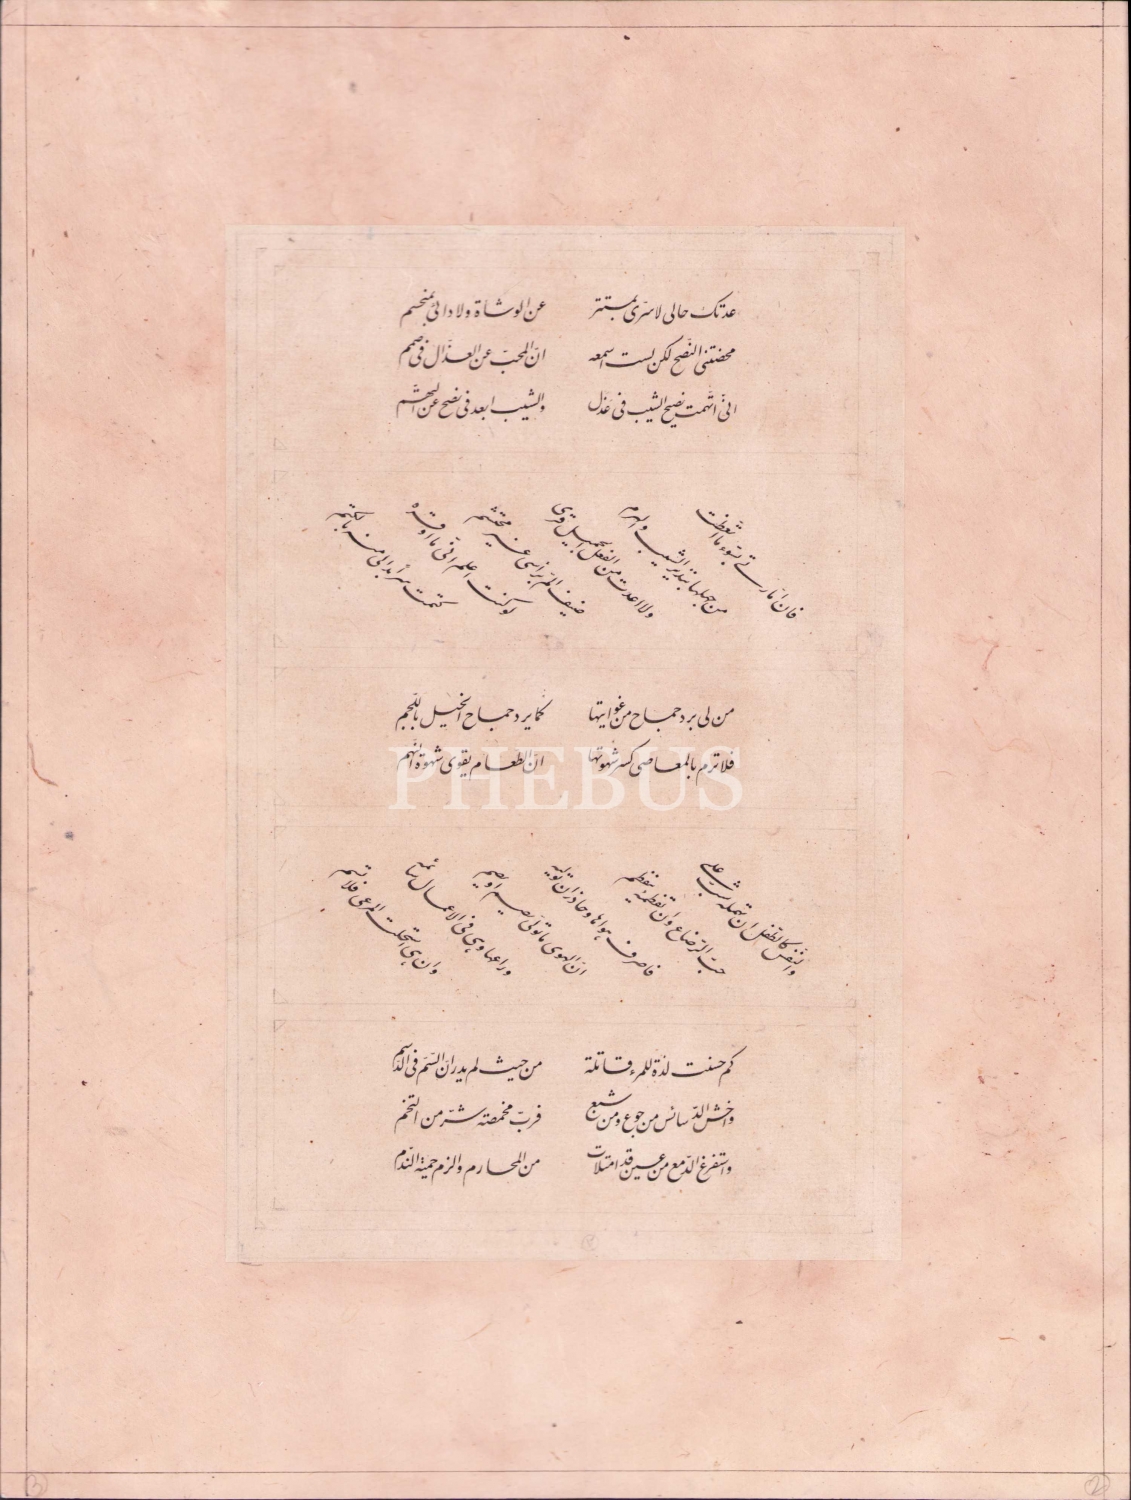 عدتك حالی لاسرّی بمستتر عن الوشاة ولا دائی بمنحسم
محضتنی النصح لكن لست اسمعه انّ المحبّ عن العذّال فی صمم
انّی اتّهمت نصیح الشیب فی عذل والشیب ابعد فی نصح عن التّهم
فان امّارتی بسّوء ما اتّعظت
من جهلها بنذیر الشیب والهرم
ولا اعدت من الفعل الجمیل قری
ضیف المّ براسی غیر محتشم
لو كنت اعلم انّی ما اوقّره
كتمت سرّا بدا لی منه بالكتم
من لی بردّ جماح من غوایتها كما یردّ جماح الخیل باللّجم
فلا ترم بالمعاصی كسر شهوتها انّ الطّعام یقوی شهوة النّهم
والنّفس كالطّفل ان تهمله شبّ علی
حبّ الرّضاع وان تفطمه ینفطم
فاصرف هواها وحاذر ان تولّیه
انّ الهوی ما تولّی یصم او یصم
وراعها وهی فی الاعمال سائمه
وان هی استحلت المرعی فلا تسم
كم حسنت لذّة للمرء قاتلة من حیث لم یدر انّ السّمّ فی الدّسم
واخش الدّسائس من جوع ومن شبع فربّ مخمصة شرّ من التخم
واستفرغ الدّمع من عین قد امتلات من المحارم والزم حمیة النّدم
PHEBUS